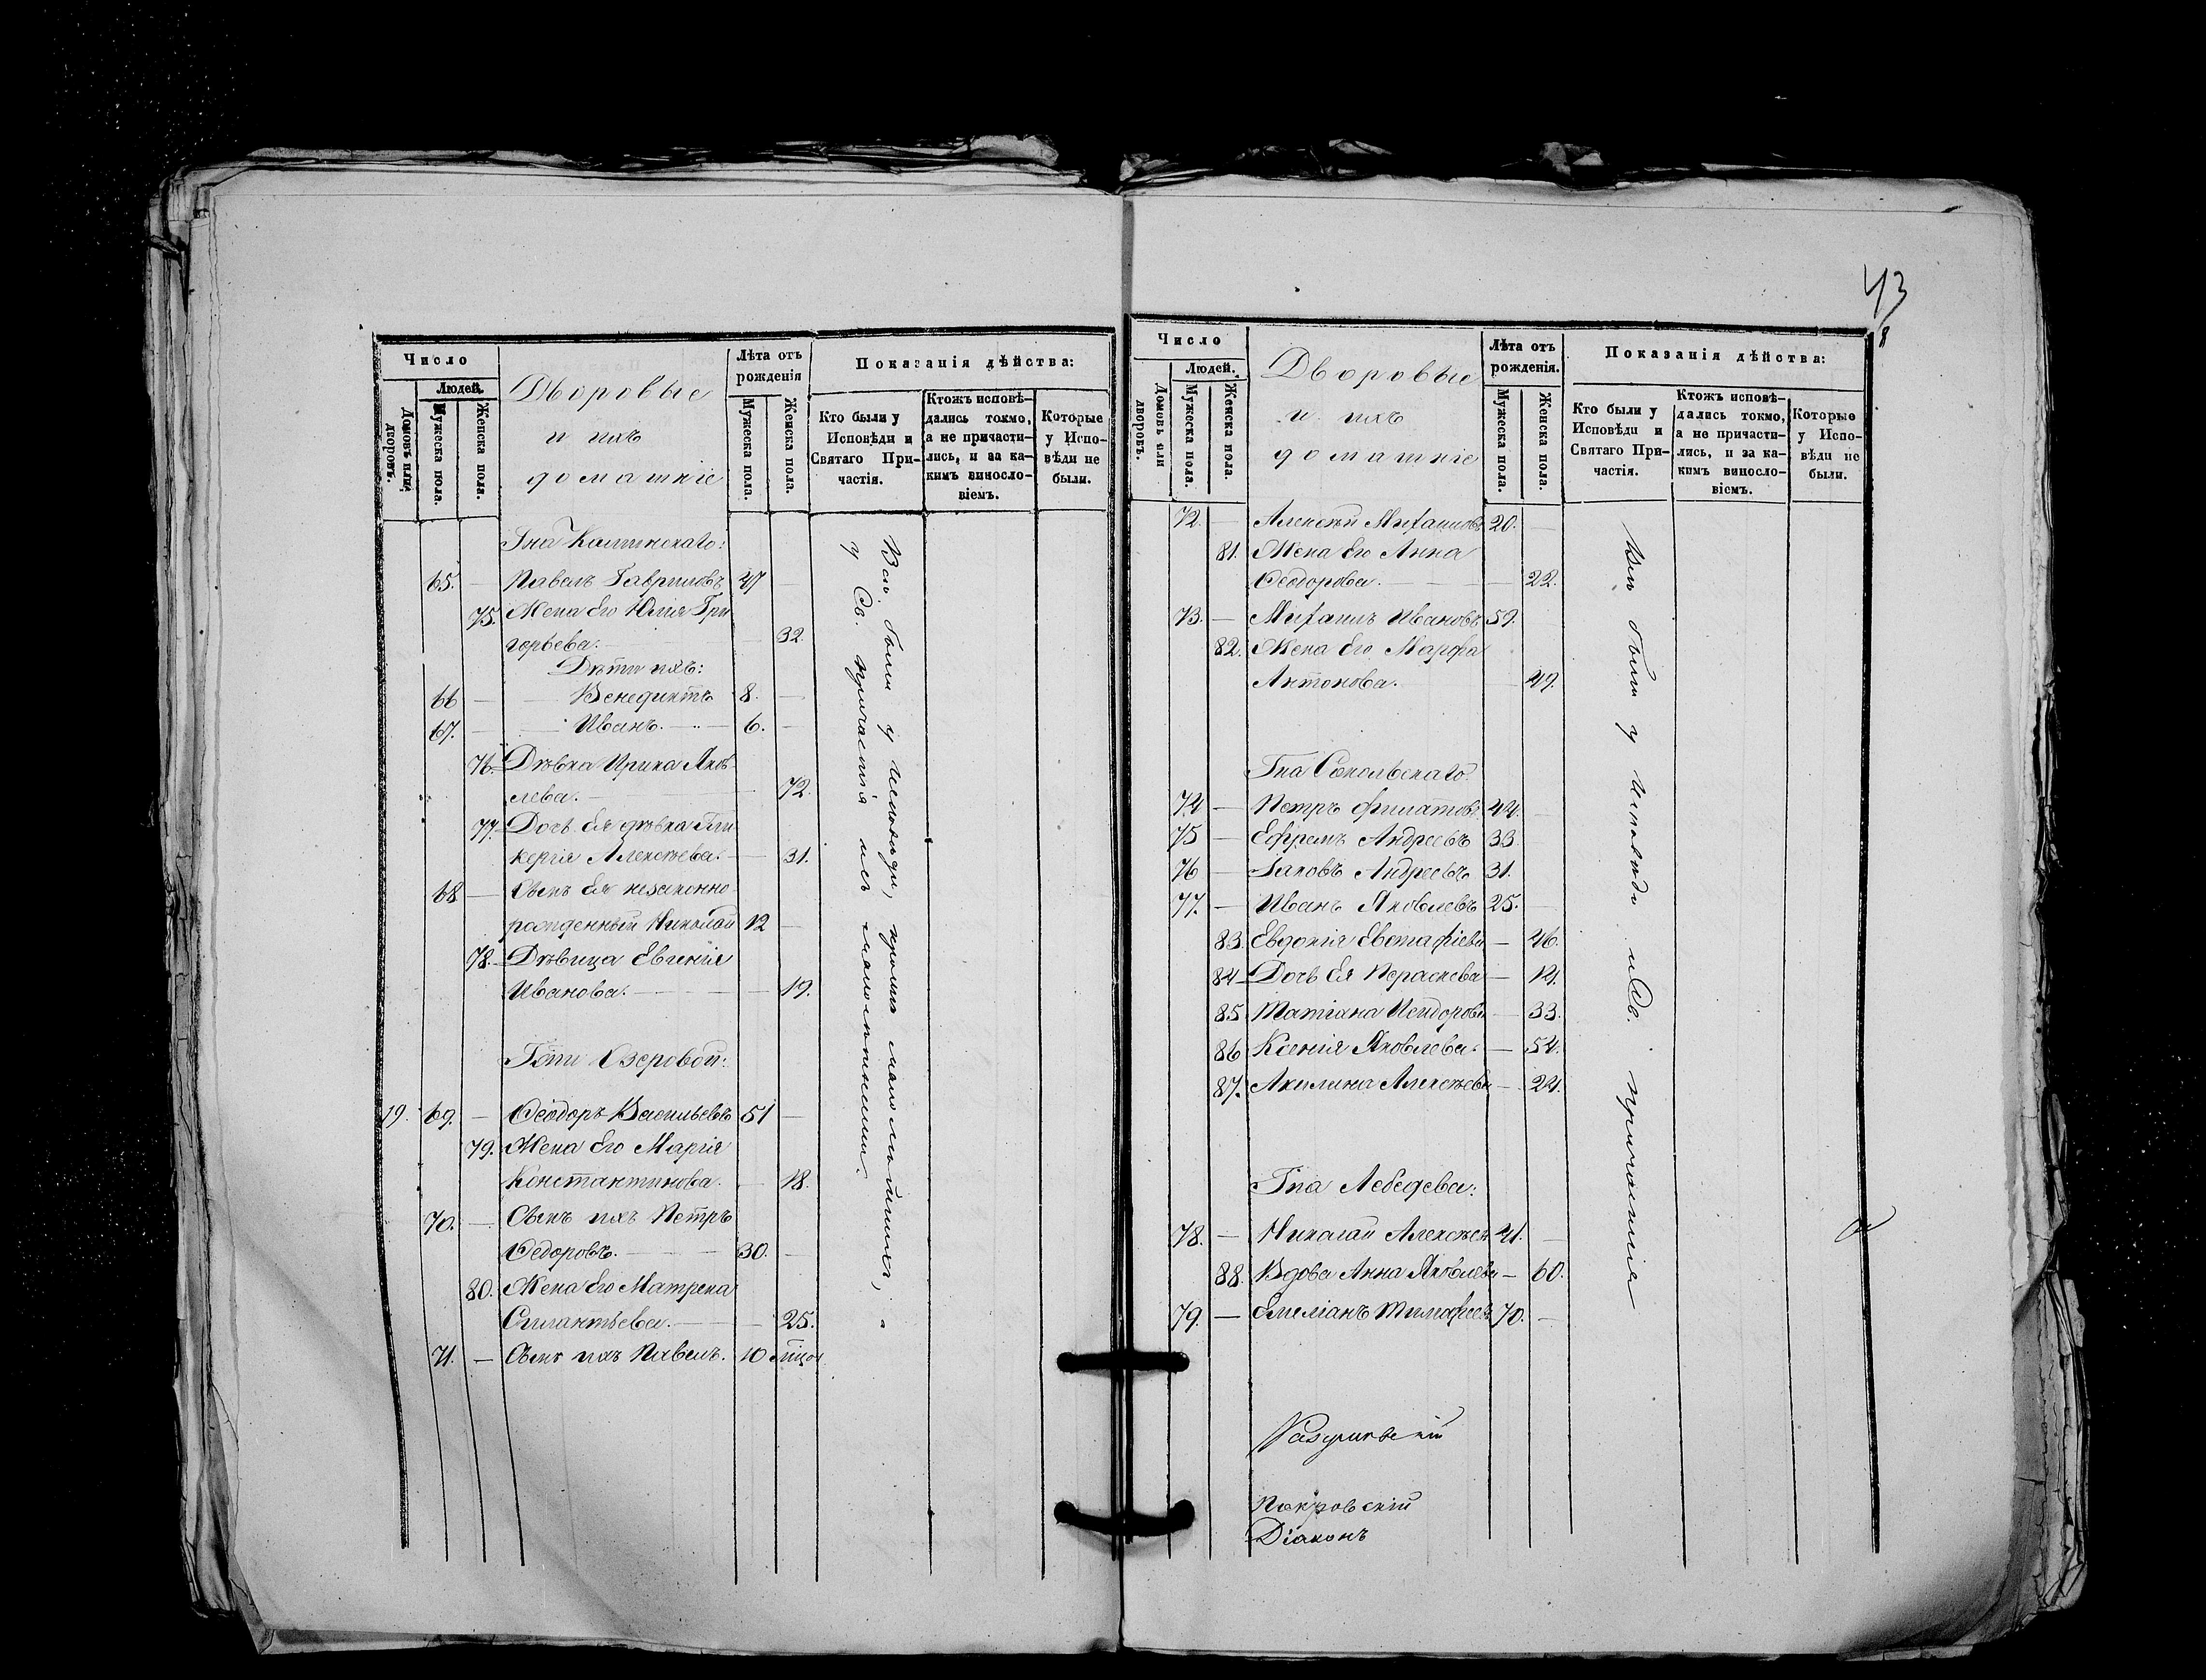 Число
Людей.
Домовъ или дворовъ.
Мужеска пола.
Женска пола.
Дворовые
и ихъ
домашніе
Лѣта отъ
рожденія
Мужеска пола.
Женска пола.
Показанія дѣйства:
Кто были у
Исповѣди и
Святаго При-
частія.
Ктожъ исповѣ-
дались токмо,
а не причасти-
лись, и за ка-
кимъ винosло-
віемъ.
Которые
у Испо-
вѣди не
были.
Гна Калинскаго:
65. — Павелъ Гавриловъ 47 —
75. Жена его Юлія Гри
горьева. — 32.
Дѣти ихъ:
66 — Венедиктъ 8. —
67. — Иванъ. — 6. —
76. Дѣвка Ирина Яков
лева. — 72.
77. Дочь ея дѣвка Гли
керія Алексѣева. — 31.
68 — Сынъ ея незаконно
рожденный Николай 12 —
78. Дѣвица Евгенія
Иванова. — 19.
Гжи Озеровой:
19. 69. — Ѳеодоръ Васильевъ 51 —
79. Жена его Марія
Константинова. — 48.
70. — Сынъ ихъ Петръ
Ѳедоровъ. — 30. —
80. Жена его Матрена
Силантьева. — 25.
71. — Сынъ ихъ Павелъ. 10
Всѣ были у исповѣди, кромѣ малолѣтнихъ,
у Св. причастія и съ малолѣтними.
43
8
Число
Людей.
Домовъ или дворовъ.
Мужеска пола.
Женска пола.
Дворовые
и ихъ
домашніе
Лѣта отъ
рожденія.
Мужеска пола.
Женска пола.
Показанія дѣйства:
Кто были у
Исповѣди и
Святаго При-
частія.
Ктожъ исповѣ-
дались токмо,
а не причасти-
лись, и за ка-
кимъ винosло-
віемъ.
Которые
у Испо-
вѣди не
были.
72. — Алексѣй Михаиловъ 20. —
81. Жена его Анна
Ѳеодорова. — 22.
73. — Михаилъ Ивановъ 59.
82. Жена его Марфа
Антонова. 49.
Гна Сокольскаго.
74 — Петръ Филатовъ 44. —
75 — Ефремъ Андреевъ 33
76 — Іаковъ Андреевъ 31.
77. — Иванъ Яковлевъ 25. —
83. Евдокія Евстафіева — 46.
84 Дочь ея Параскева — 14.
85 Татіана Исидорова — 33.
86 Ксенія Яковлева. — 54.
87. Акилина Алексѣева — 24.
Гна Лебедева:
78. — Николай Алексѣевъ 41. —
88. Вдова Анна Яковлева — 60.
79. — Емеліанъ Тимофеевъ 70. —
Всѣ были у исповѣди и Св. причастія
Покровскій
Діаконъ